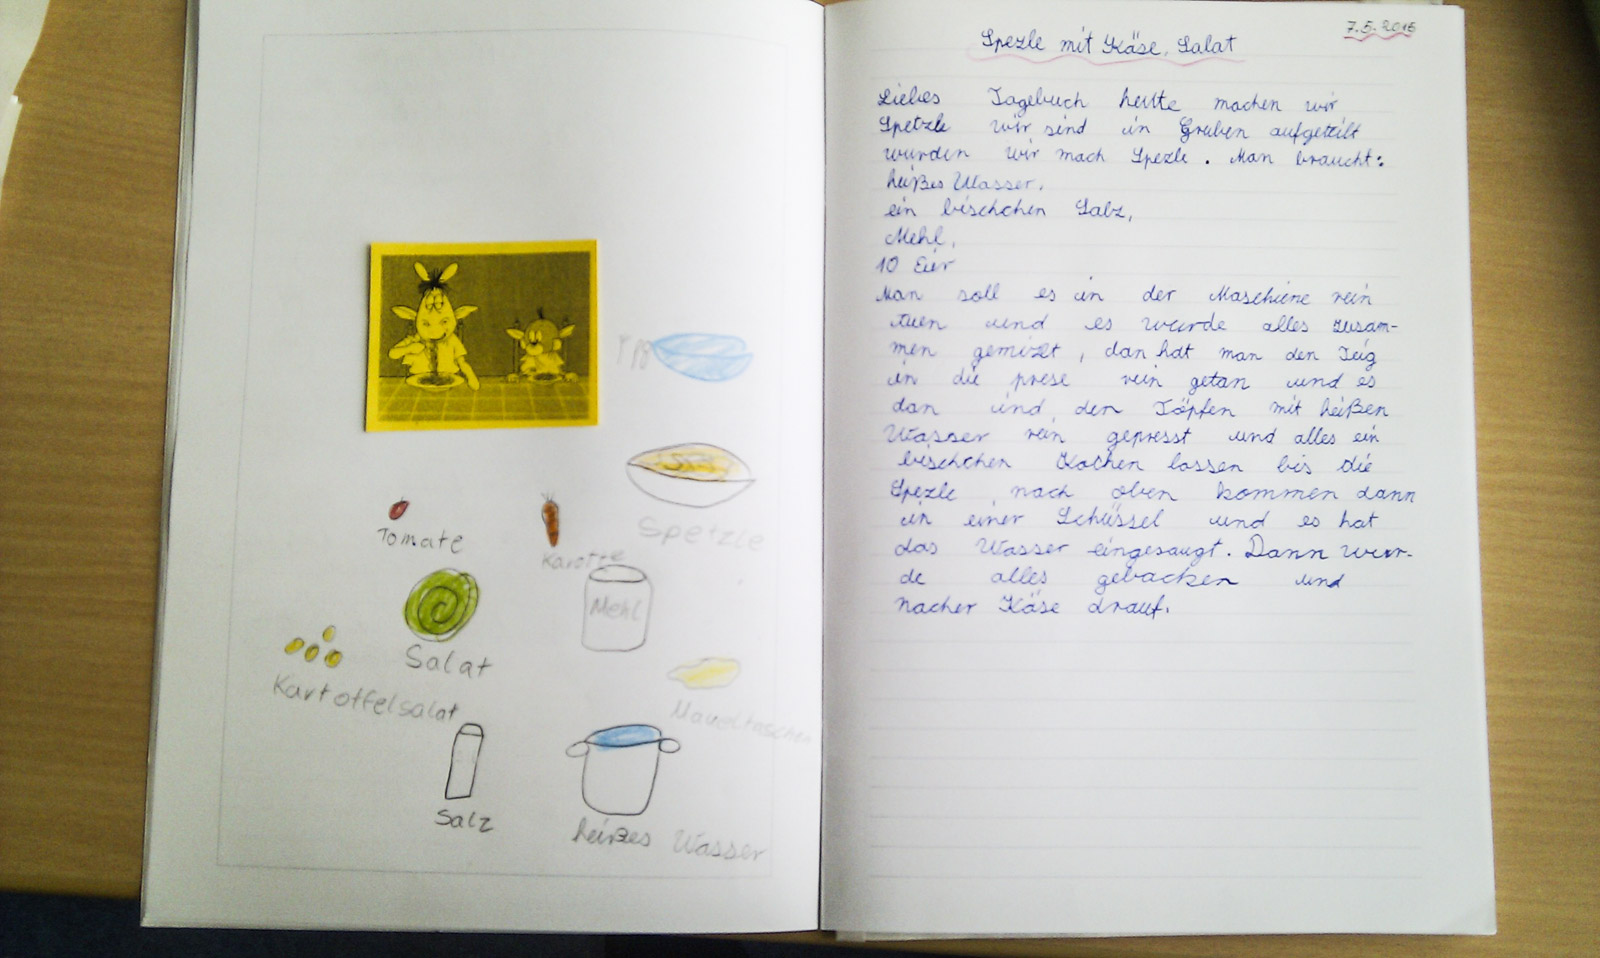 Tomate
Karotte
Spetzle
Mehl
Salat
Kartoffelsalat
Maueltaschen
Salz
heißes Wasser
7.5.2015
Spezle mit Käse, Salat
Liebes Tagebuch heute machen wir
Spetzle wir sind in Gruben aufgeteilt
wurden wir mach Spezle. Man braucht:
heißes Wasser,
ein bischchen Salz,
Mehl,
10 Eier
Man soll es in der Maschiene rein
tuen und es wurde alles zusam-
men gemixt, dan hat man den Teig
in die prese rein getan und es
dan ind den Töpfen mit heißen
Wasser rein gepresst und alles ein
bischchen Kochen lassen bis die
Spezle, nach oben kommen dann
in einer Schüssel und es hat
das Wasser eingesaugt. Dann wur-
de alles gebacken und
nacher Käse drauf.